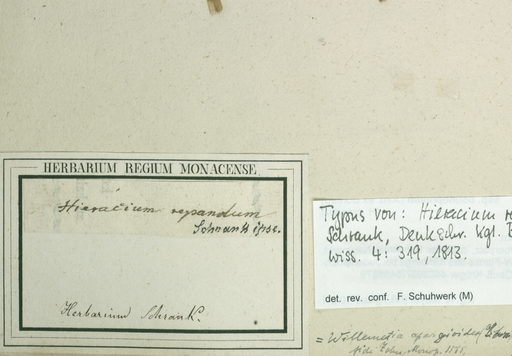 HERBARIUM REGIUM MONACENSE.
Hieracium repandum
Schrank ipse.
Herbarium Schrank.
Typus von: Hieracium
Schrank, Denkschr. Kgl.
Wiss. 4: 319, 1813.
det. rev. conf. F. Schuhwerk (M)
= Willemetia apargioides
fide